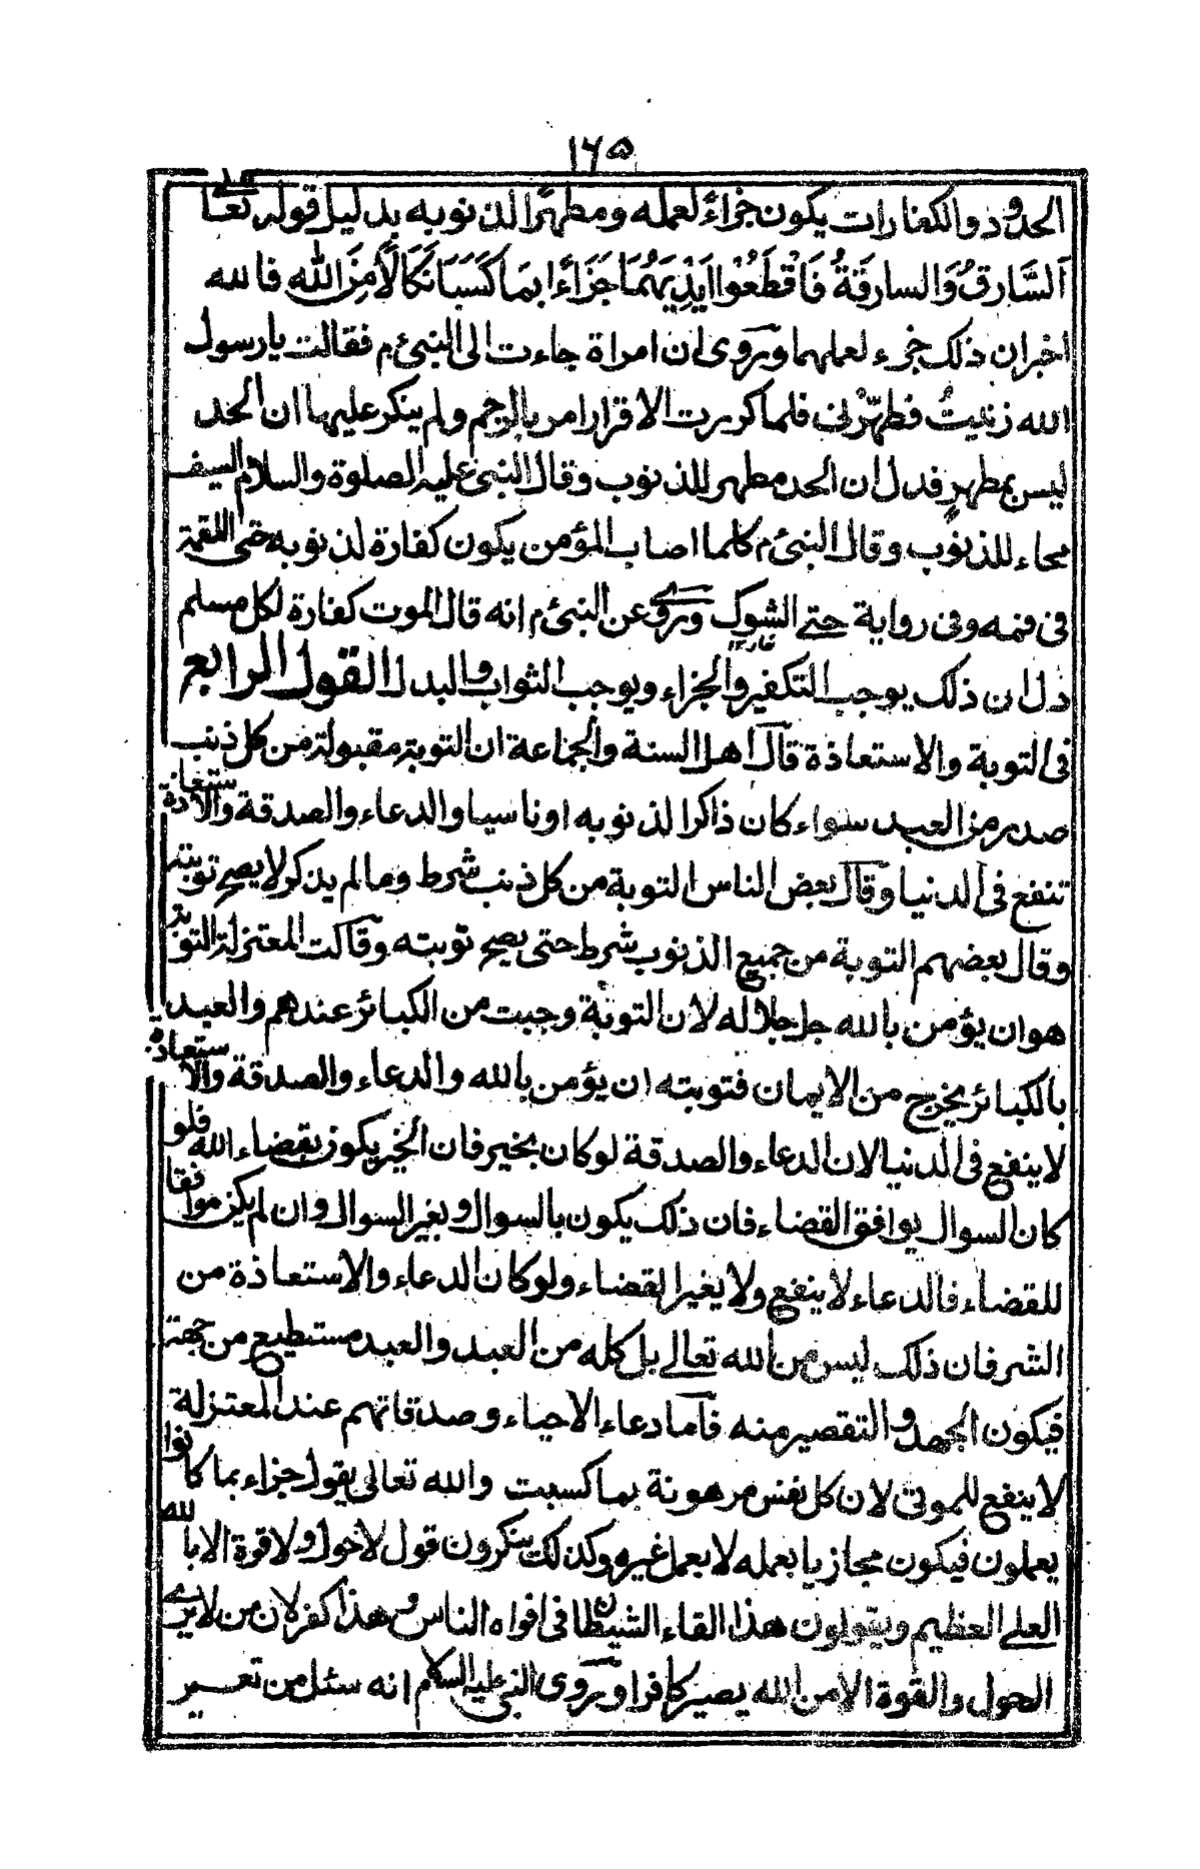 ١٦٥
الحدود والكفارات يكون جزاءً لعمله ومطهرًا لذنوبه بدليل قوله تعالى
اَلسَّارِقُ وَالسارِقَةُ فَاقْطَعُوا اَيْدِيَهُمَا جَزَاءً ابِمَا كَسَبَا نَكَالًا مِنَ الله فالله
اخبر ان ذلك جزء لعملهما وروى ان امراة جاءت الى النبى م فقالت يا رسول
الله زنيتُ فطهّرْنى فلما كررت الاقرار امر بالرجم ولم ينكر عليها ان الحد
ليس بمطهرٍ فدل ان الحد مطهر للذنوب وقال النبى عليه الصلوة والسلام السيف
محاء للذنوب وقال النبى م كلما اصاب المؤمن يكون كفارة لذنوبه حتى اللقمة
فى فمه وفى رواية حتے الشوك وروے عن النبى م انه قال الموت كفارة لكل مسلم
دل ان ذلك يوجب التكفير والجزاء ويوجب الثواب والبدل القول الرابع
فى التوبة والاستعاذة قال اهل السنة والجماعة ان التوبة مقبولة من كل ذنب
صدر من العبد سواء كان ذاكرا لذنوبه او ناسيا والدعاء والصدقة والاستعاذة
تنفع فى الدنيا وقال بعض الناس التوبة من كل ذنب شرط وما لم يذكر لا يصح توبته
وقال بعضهم التوبة من جميع الذنوب شرط حتى يصح توبته وقالت المعتزلة التوبة
هو ان يؤمن بالله جل جلاله لان التوبة وجبت من الكبائر عندهم والعبد
بالكبائر يخرج من الايمان فتوبته ان يؤمن بالله والدعاء والصدقة والاستعاذة
لا ينفع فى الدنيا لان الدعاء والصدقة لو كان بخير فان الخير يكون بقضاء الله فلو
كان السوال يوافق القضاء فان ذلك يكون بالسوال و بغير السوال وان لم يكن موافقا
للقضاء فالدعاء لا ينفع ولا يغير القضاء ولو كان الدعاء والاستعاذة من
الشر فان ذلك ليس من الله تعالے بل كله من العبد والعبد مستطيع من جهته
فيكون الجهد و التقصير منه فاما دعاء الاحياء وصدقاتهم عند المعتزلة
لا ينفع للموتى لان كل نفس مرهونة بما كسبت والله تعالى يقول جزاء بما كانوا
يعملون فيكون مجازيا بعمله لا بعمل غيره وكذلك ينكرون قول لاحول ولا قوة الا بالله
العلے العظيم ويقولون هذا القاء الشيطان فى افواه الناس و هذا كفر لان من لا يرے
الحول والقوة الا من الله يصير كافرا وروى النبى عليه السلام انه سئل من تعسير